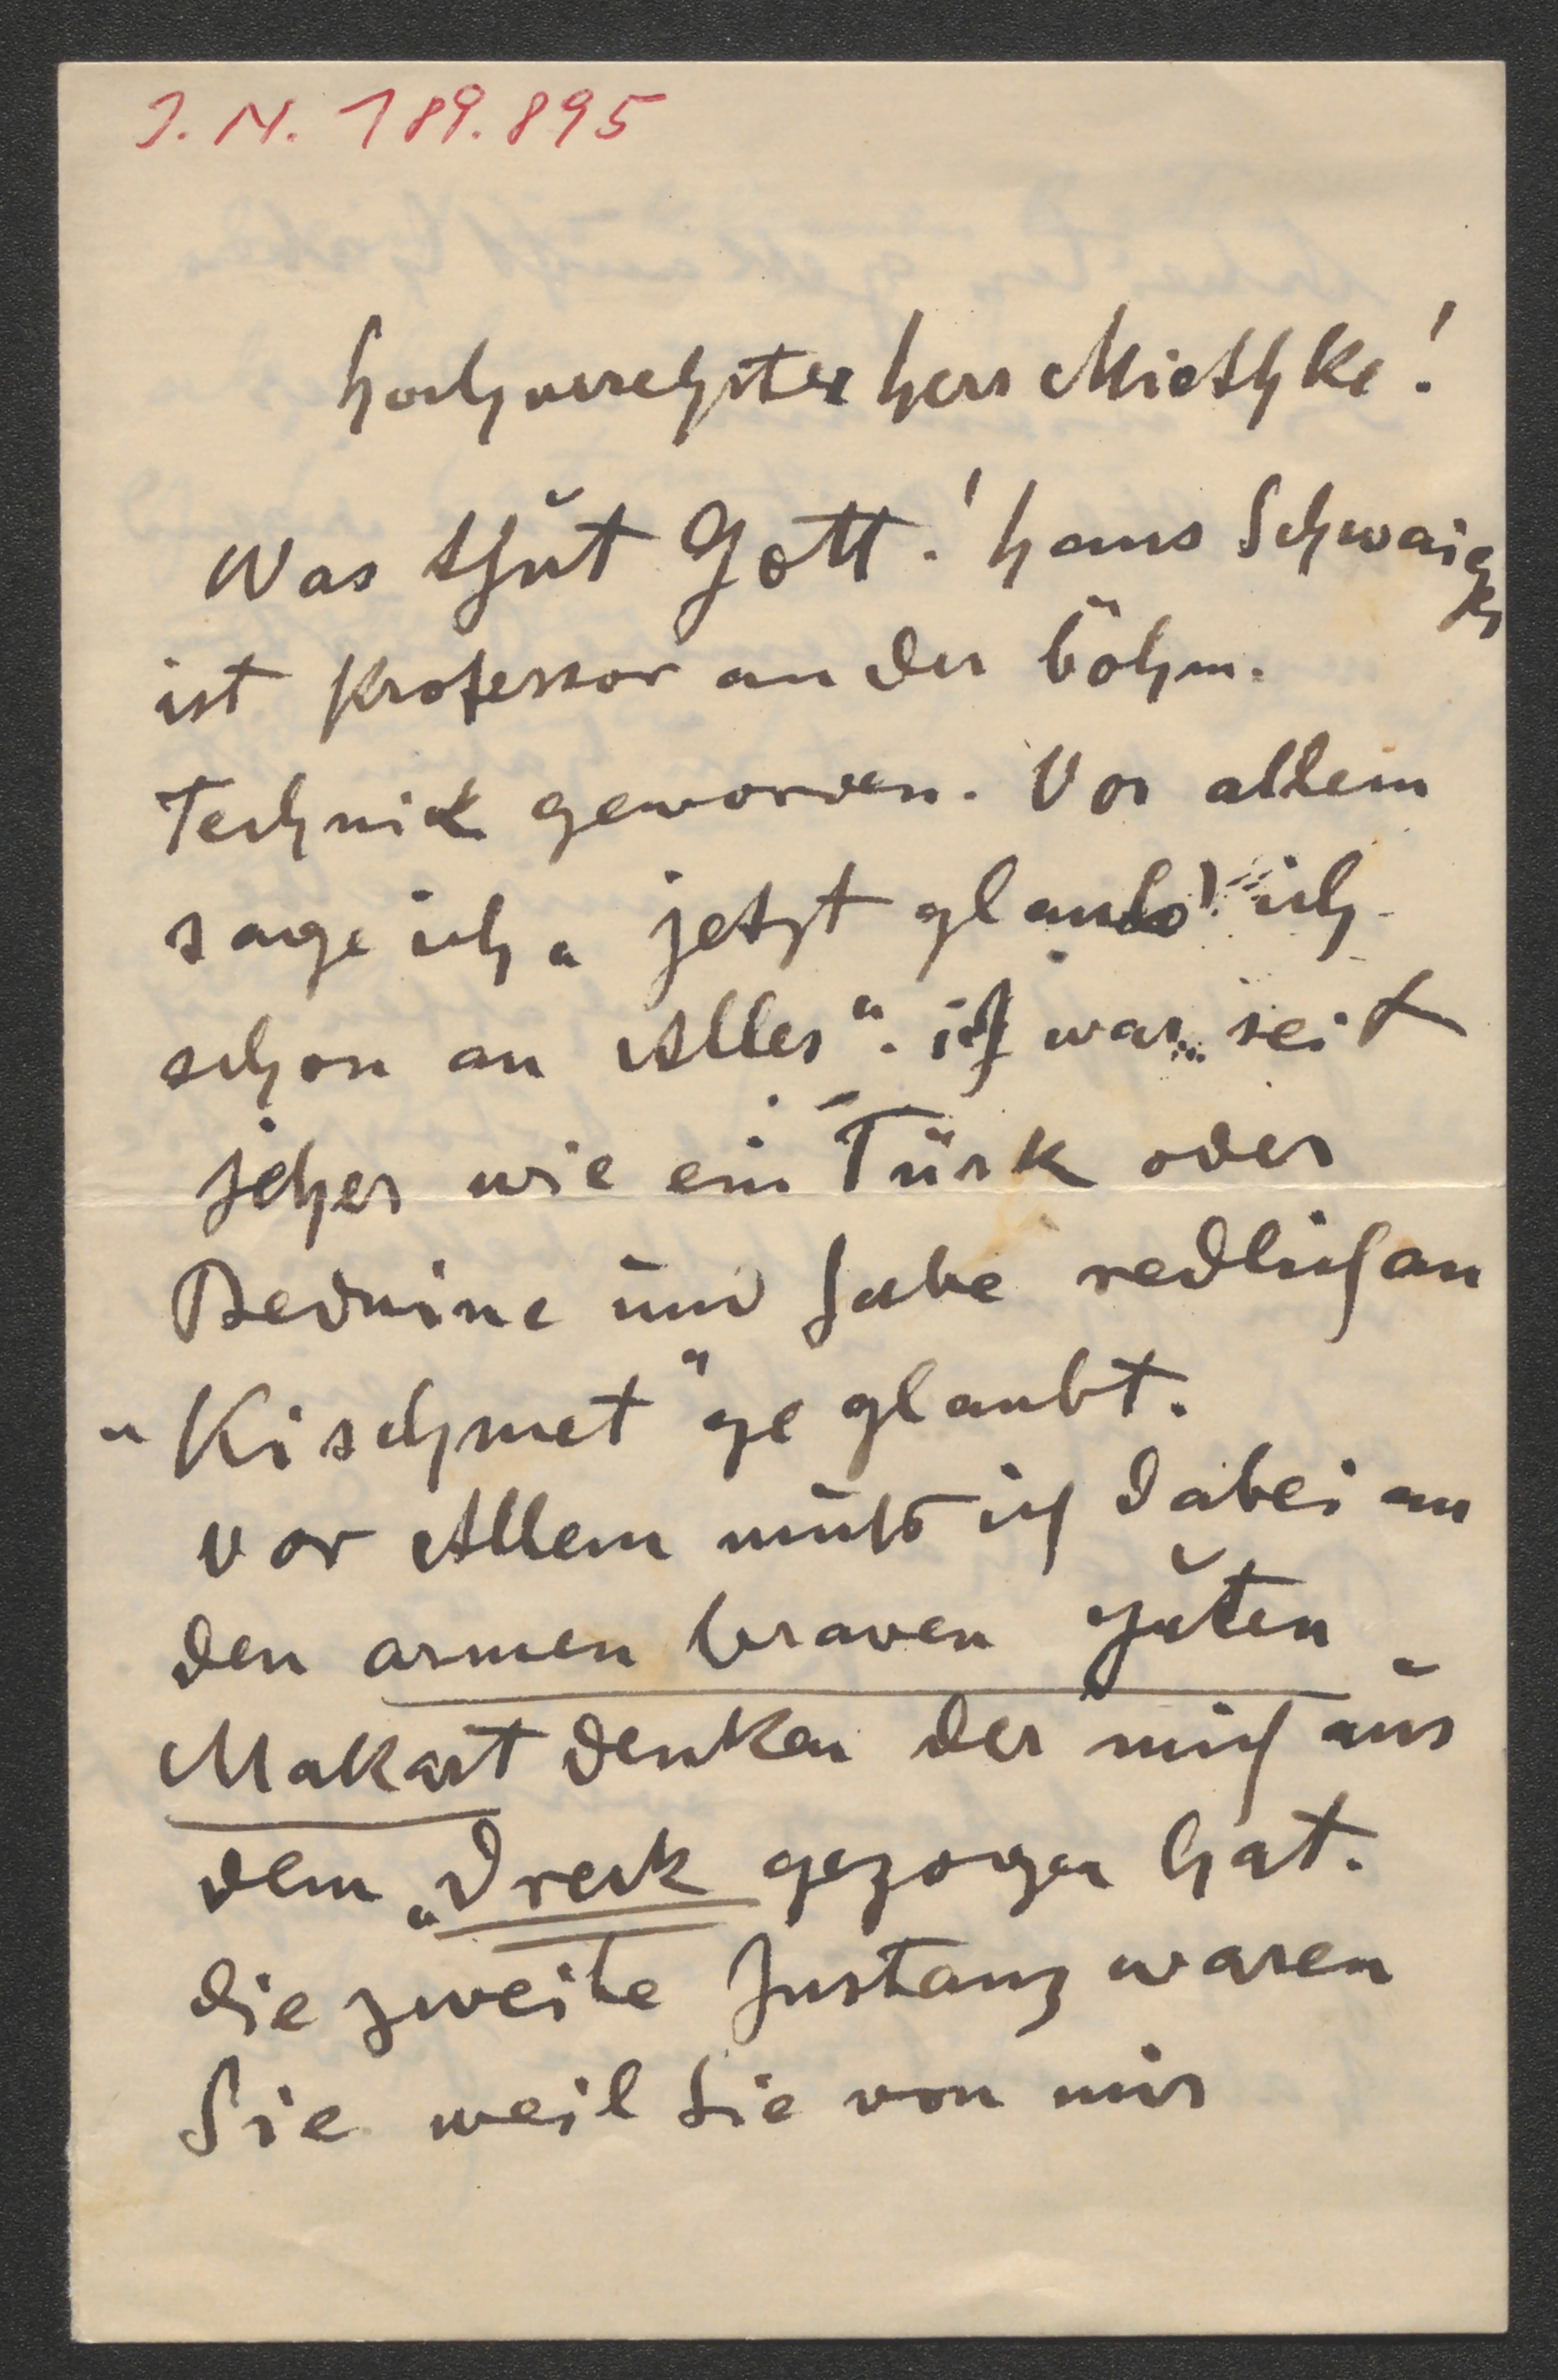 J. N. 189.895
hochverehrter herr Miethke!
Was thut Gott! hans Schwaiger
ist Professor an der böhm.
Technik geworden. Vor allem
sage ich „jetzt glaub' ich
schon an Alles“. ich war seit
jeher wie ein Türk oder
Beduine und habe redlich an
„Kischmet“ geglaubt.
vor Allem muß ich dabei an
den armen braven guten
Makart denken der mich aus
dem „Dreck gezogen hat.
die zweite Instanz waren
Sie weil Sie von mir